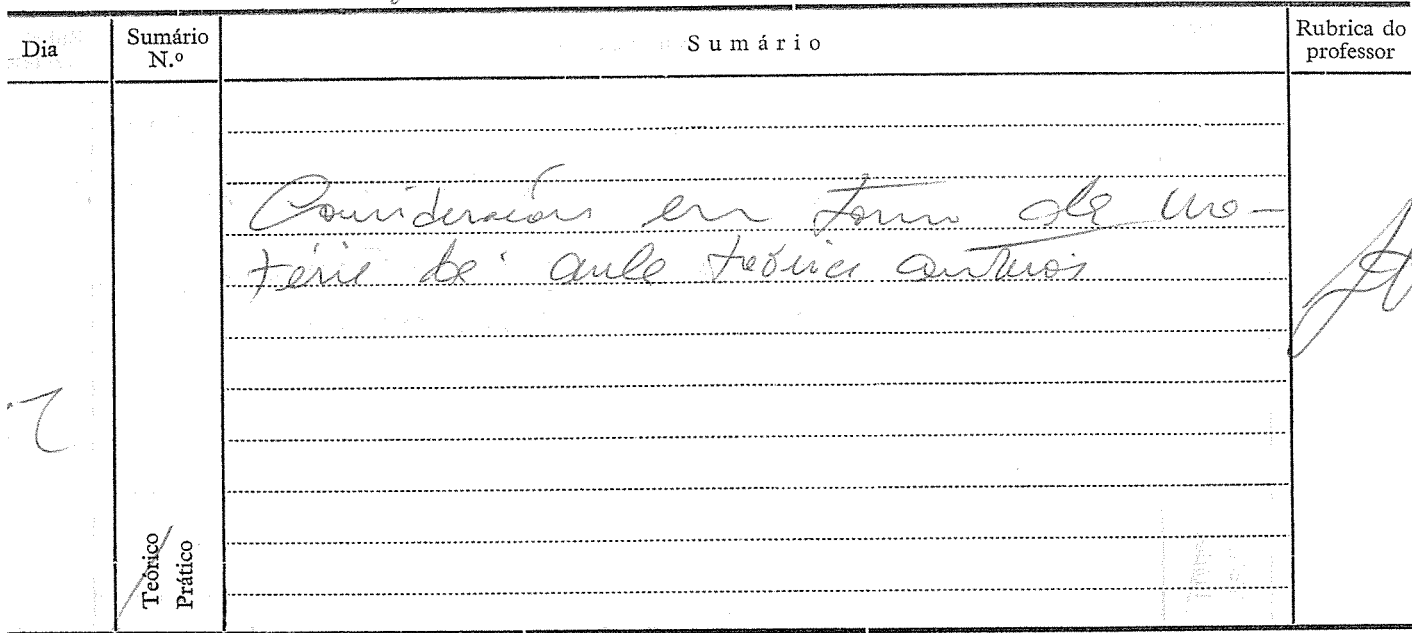 Dia
Sumário N.º
Sumário
Rubrica do professor
Considerações em torno da ma-
téria da aula teórica anterior
Teórico
Prático